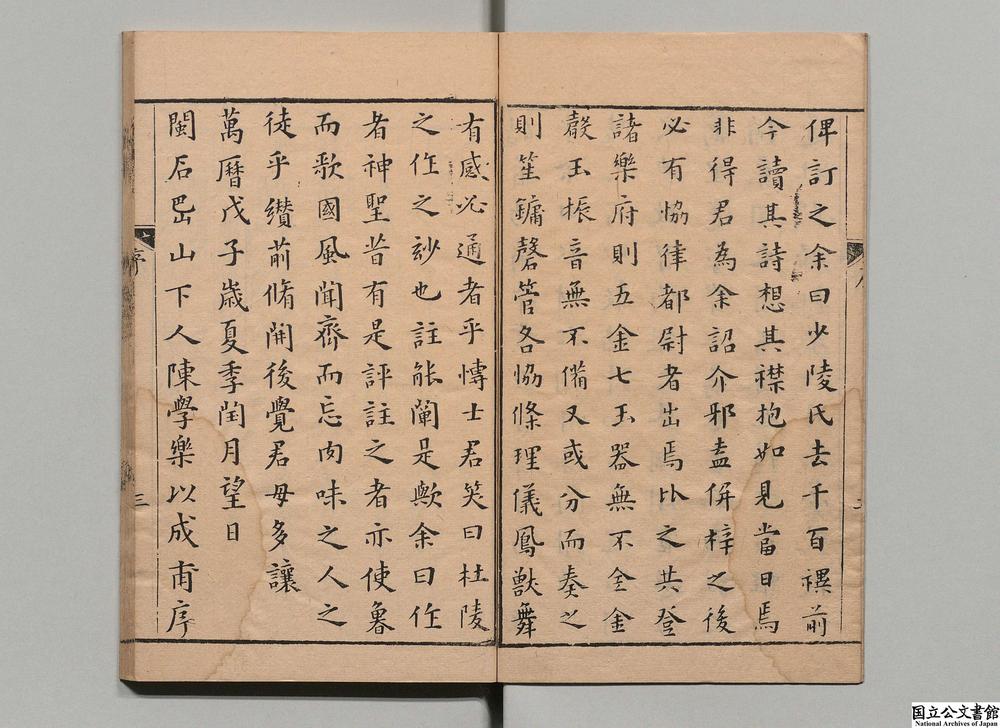 俾訂之余曰少陵氏去千百禩前
今讀其詩想其襟抱如見當日焉
非得君為余詔介邪盍併梓之後
必有恊律都尉者出焉比之共登
諸樂府則五金七玉器無不全金
聲玉振音無不備又或分而奏之
則笙鏞磬管各恊條理儀鳳獸舞
有感必通者乎博士君笑曰杜陵
之作之玅也註能闡是歟余曰作
者神聖昔有是評註之者亦使魯
而歌國風聞齊而忘肉味之人之
徒乎纉前脩開後覺君毋多讓
萬曆戊子歳夏季閏月望日
閩后㟭山下人陳學樂以成甫序
序
三
国立公文書館
National Archives of Japan